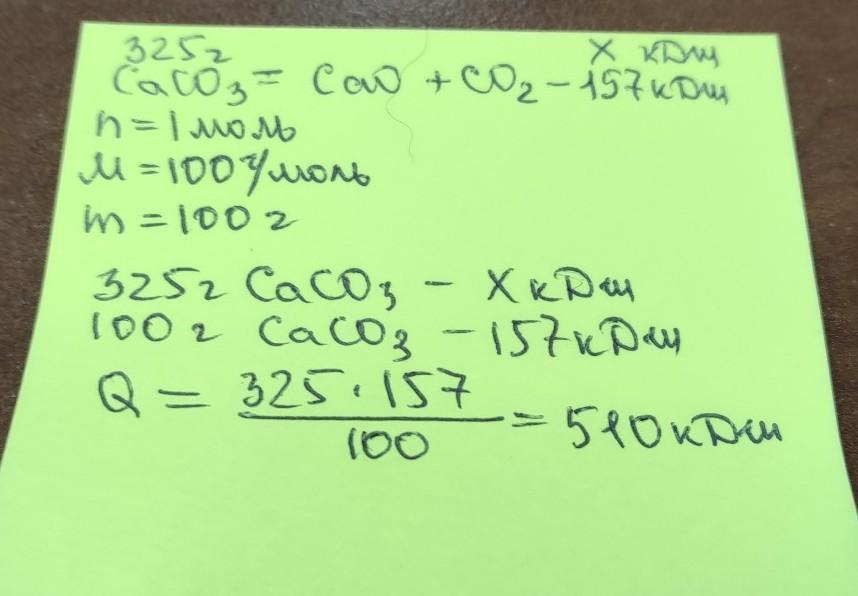 325г X кДж
CaCO₃ = CaO + CO₂ - 157кДж
n = 1 моль
M = 100 г/моль
m = 100 г
325г CaCO₃ - X кДж
100 г CaCO₃ - 157кДж
Q = 325 · 157 / 100 = 510 кДж